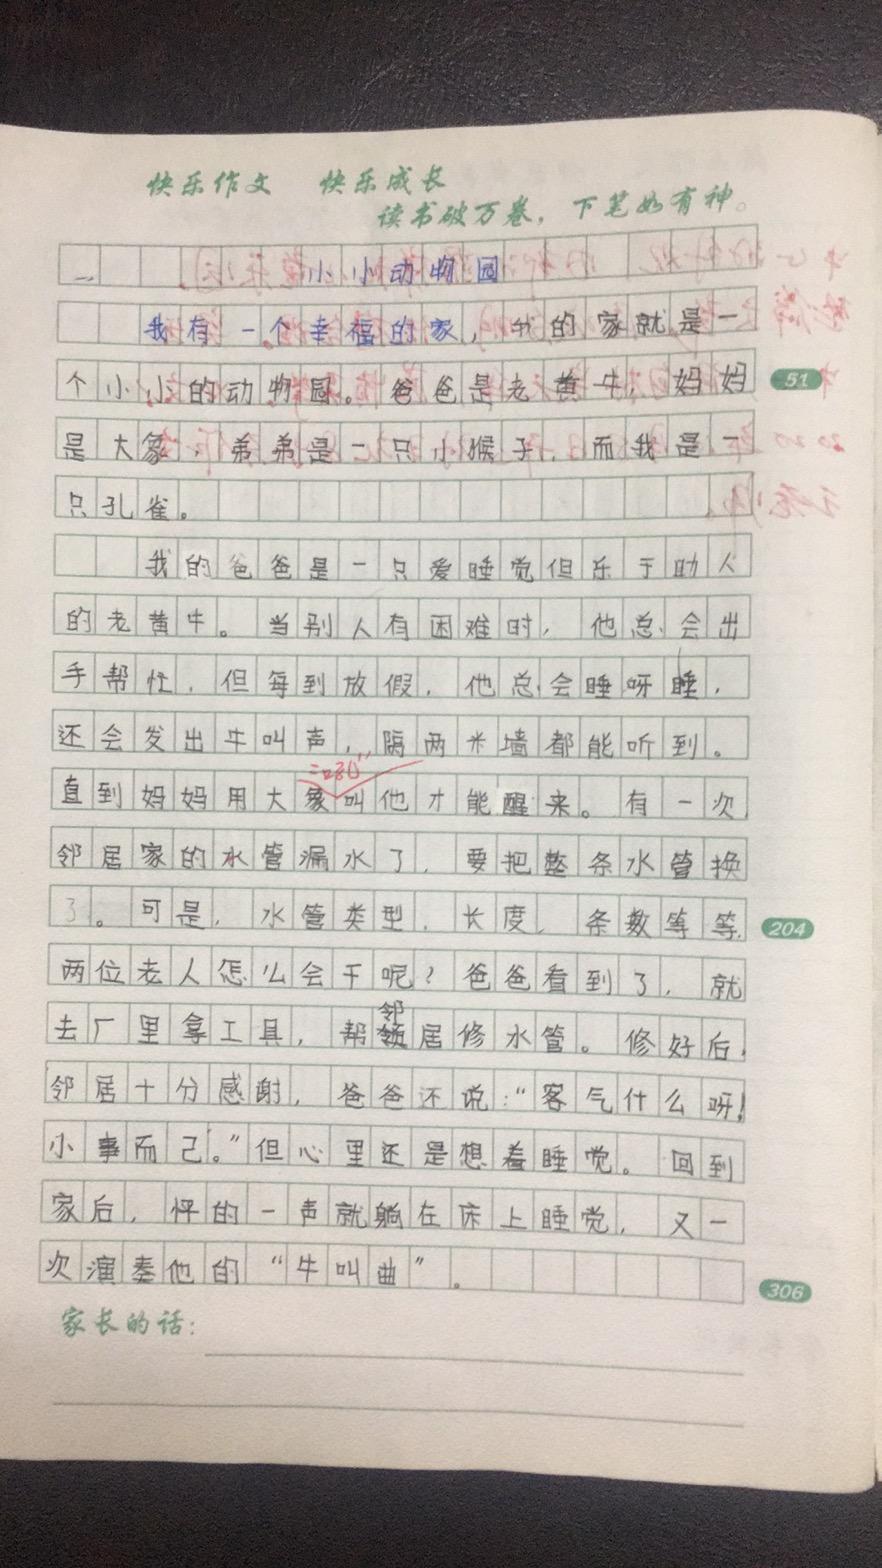 快乐作文 快乐成长
读书破万卷，下笔如有神。
小小动物园
我有一个幸福的家，我的家就是一
个小小的动物园。爸爸是老黄牛，妈妈 51
是大象，弟弟是一只小猴子，而我是一
只孔雀。
我的爸爸是一只爱睡觉但乐于助人
的老黄牛。当别人有困难时，他总会出
手帮忙，但每到放假，他总会睡呀睡，
还会发出牛叫声，隔两米墙都能听到。
直到妈妈用大象叫他才能醒来。有一次
邻居家的水管漏水了，要把整条水管换
了。可是，水管类型，长度，条数等等， 204
两位老人怎么会干呢？爸爸看到了，就
去厂里拿工具，帮邻居修水管。修好后，
邻居十分感谢，爸爸还说：“客气什么呀！
小事而己。”但心里还是想着睡觉。回到
家后，怦的一声就躺在床上睡觉，又一
次演奏他的“牛叫曲”。 306
家长的话：